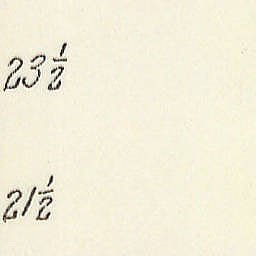 23½
21½